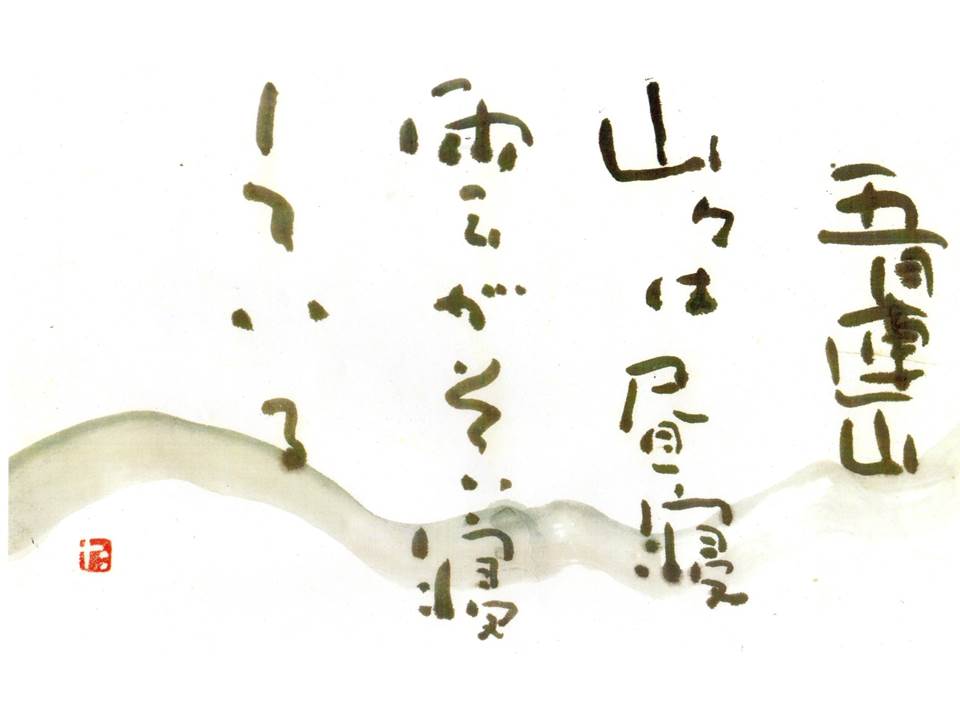 五月連山
山々は昼寝
雲がそい寝
している